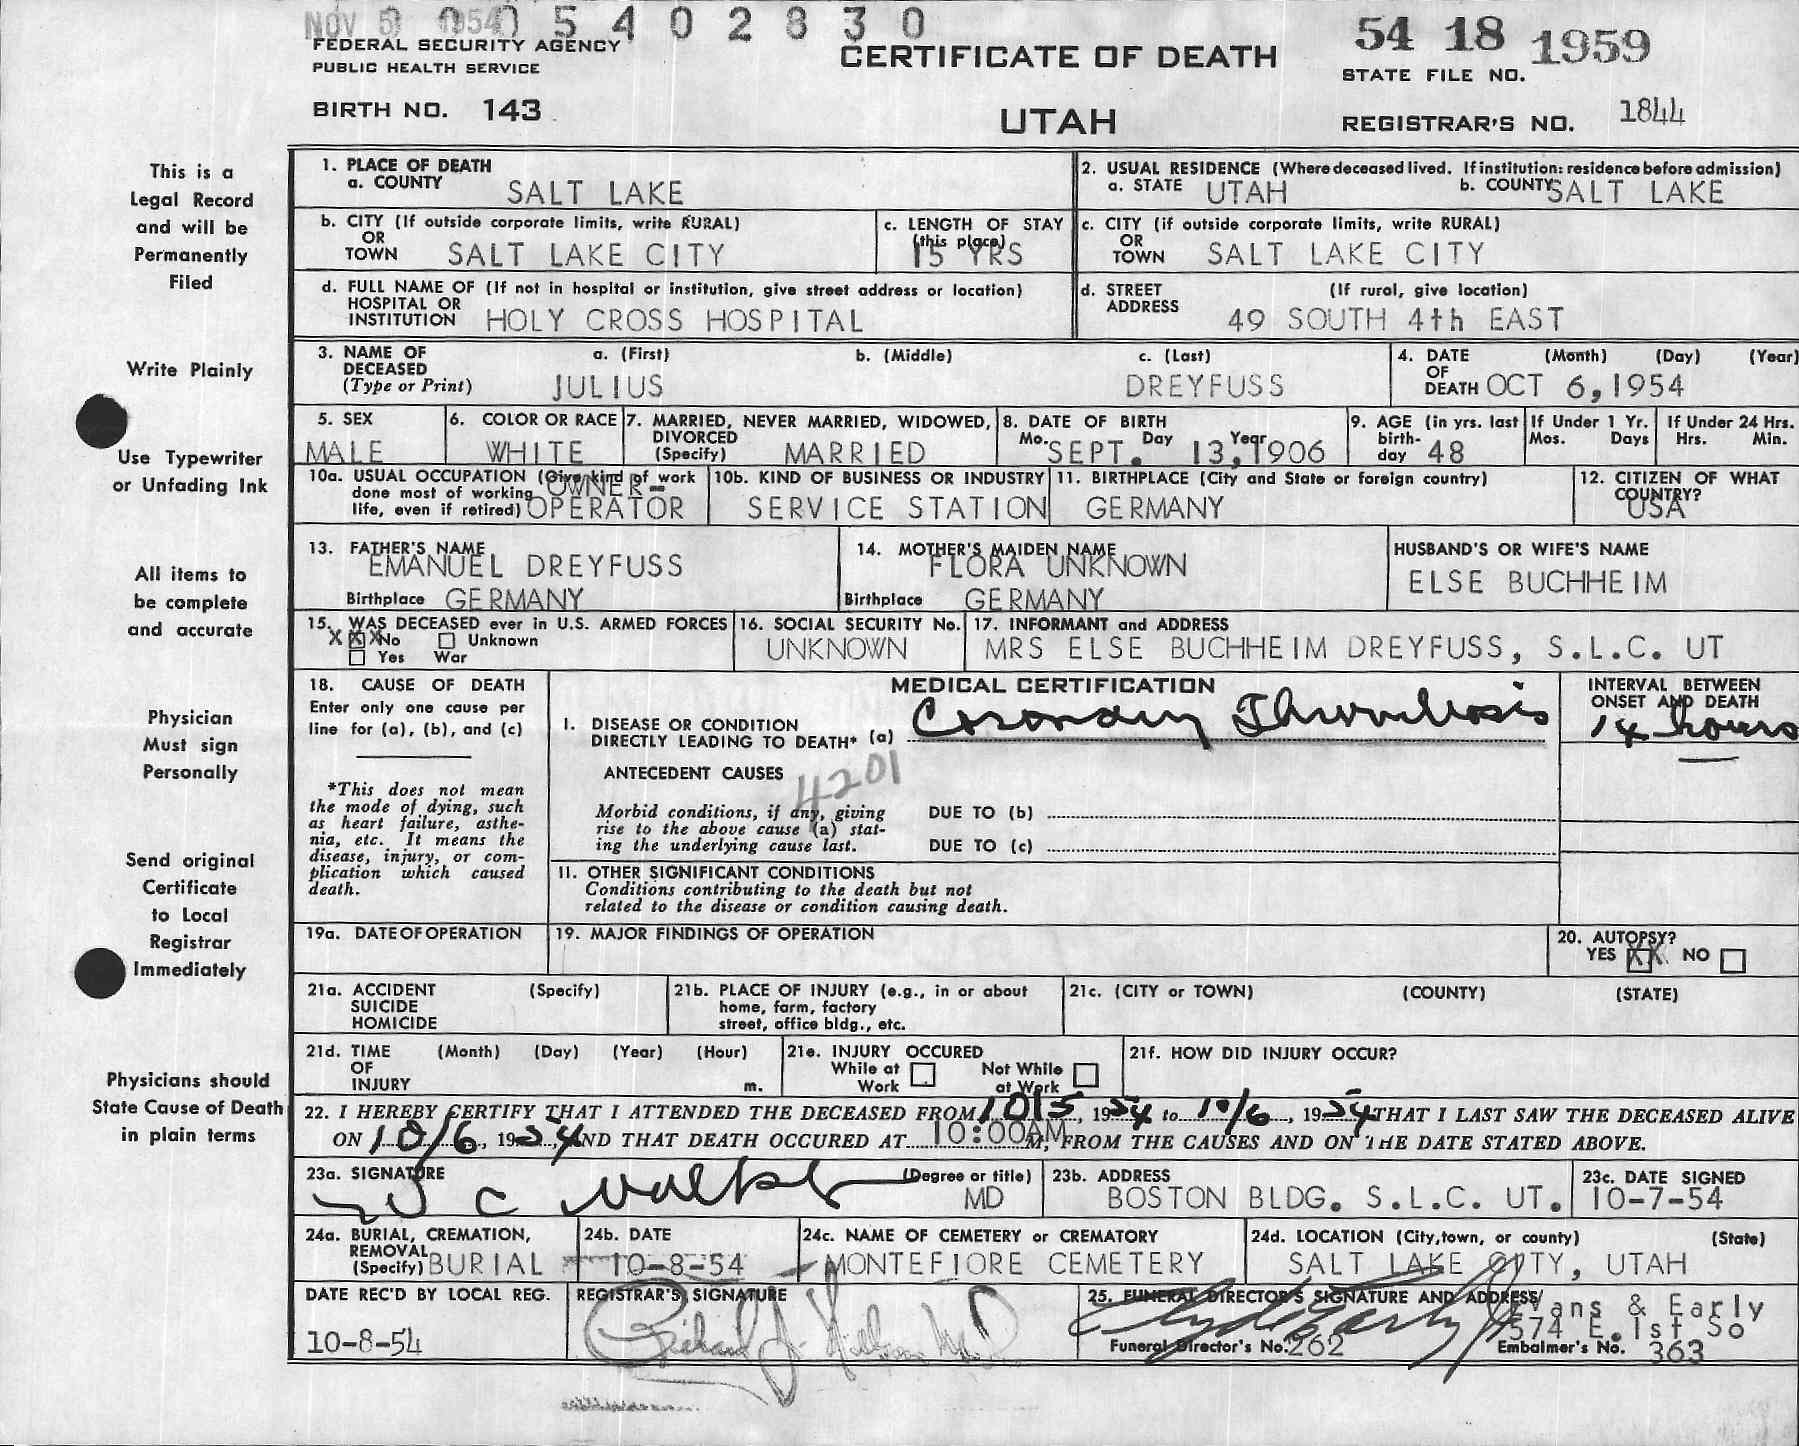 NOV 5 1954
0 0 0 5 4 0 2 8 3 0
FEDERAL SECURITY AGENCY
PUBLIC HEALTH SERVICE
BIRTH NO. 143
CERTIFICATE OF DEATH
UTAH
54 18 1959
STATE FILE NO.
REGISTRAR'S NO. 1844
This is a
Legal Record
and will be
Permanently
Filed
Write Plainly
Use Typewriter
or Unfading Ink
All items to
be complete
and accurate
Physician
Must sign
Personally
Send original
Certificate
to Local
Registrar
Immediately
Physicians should
State Cause of Death
in plain terms
1. PLACE OF DEATH
a. COUNTY SALT LAKE
2. USUAL RESIDENCE (Where deceased lived. If institution: residence before admission)
a. STATE UTAH b. COUNTY SALT LAKE
b. CITY (If outside corporate limits, write RURAL)
OR
TOWN SALT LAKE CITY
c. LENGTH OF STAY
(this place)
15 YRS
c. CITY (if outside corporate limits, write RURAL)
OR
TOWN SALT LAKE CITY
d. FULL NAME OF (If not in hospital or institution, give street address or location)
HOSPITAL OR
INSTITUTION HOLY CROSS HOSPITAL
d. STREET (If rural, give location)
ADDRESS
49 SOUTH 4th EAST
3. NAME OF DECEASED
(Type or Print)
a. (First) b. (Middle) c. (Last)
JULIUS DREYFUSS
4. DATE (Month) (Day) (Year)
OF
DEATH OCT 6, 1954
5. SEX
MALE
6. COLOR OR RACE
WHITE
7. MARRIED, NEVER MARRIED, WIDOWED,
DIVORCED
(Specify) MARRIED
8. DATE OF BIRTH
Mo. Day Year
SEPT. 13, 1906
9. AGE (in yrs. last
birth-
day 48
If Under 1 Yr.
Mos. Days
If Under 24 Hrs.
Hrs. Min.
10a. USUAL OCCUPATION (Give kind of work
done most of working
life, even if retired) OWNER-
OPERATOR
10b. KIND OF BUSINESS OR INDUSTRY
SERVICE STATION
11. BIRTHPLACE (City and State or foreign country)
GERMANY
12. CITIZEN OF WHAT
COUNTRY?
USA
13. FATHER'S NAME
EMANUEL DREYFUSS
Birthplace GERMANY
14. MOTHER'S MAIDEN NAME
FLORA UNKNOWN
Birthplace GERMANY
HUSBAND'S OR WIFE'S NAME
ELSE BUCHHEIM
15. WAS DECEASED ever in U.S. ARMED FORCES
XXX No Unknown
Yes War
16. SOCIAL SECURITY No.
UNKNOWN
17. INFORMANT and ADDRESS
MRS ELSE BUCHHEIM DREYFUSS, S.L.C. UT
18. CAUSE OF DEATH
Enter only one cause per
line for (a), (b), and (c)
*This does not mean
the mode of dying, such
as heart failure, asthe-
nia, etc. It means the
disease, injury, or com-
plication which caused
death.
MEDICAL CERTIFICATION
I. DISEASE OR CONDITION
DIRECTLY LEADING TO DEATH* (a) Coronary Thrombosis
INTERVAL BETWEEN
ONSET AND DEATH
14 hours
ANTECEDENT CAUSES
4201
Morbid conditions, if any, giving
rise to the above cause (a) stat-
ing the underlying cause last.
DUE TO (b)
DUE TO (c)
11. OTHER SIGNIFICANT CONDITIONS
Conditions contributing to the death but not
related to the disease or condition causing death.
19a. DATE OF OPERATION
19. MAJOR FINDINGS OF OPERATION
20. AUTOPSY?
YES XX NO
21a. ACCIDENT (Specify)
SUICIDE
HOMICIDE
21b. PLACE OF INJURY (e.g., in or about
home, farm, factory
street, office bldg., etc.
21c. (CITY or TOWN) (COUNTY) (STATE)
21d. TIME (Month) (Day) (Year) (Hour)
OF
INJURY m.
21e. INJURY OCCURED
While at Not While
Work at Work
21f. HOW DID INJURY OCCUR?
22. I HEREBY CERTIFY THAT I ATTENDED THE DECEASED FROM 10/5, 1954 to 10/6, 1954 THAT I LAST SAW THE DECEASED ALIVE
ON 10/6, 1954, AND THAT DEATH OCCURED AT 10:00AM M, FROM THE CAUSES AND ON THE DATE STATED ABOVE.
23a. SIGNATURE (Degree or title)
MD
23b. ADDRESS
BOSTON BLDG. S.L.C. UT.
23c. DATE SIGNED
10-7-54
24a. BURIAL, CREMATION,
REMOVAL
(Specify) BURIAL
24b. DATE
10-8-54
24c. NAME OF CEMETERY or CREMATORY
MONTEFIORE CEMETERY
24d. LOCATION (City, town, or county) (State)
SALT LAKE CITY, UTAH
DATE REC'D BY LOCAL REG.
10-8-54
REGISTRAR'S SIGNATURE
25. FUNERAL DIRECTOR'S SIGNATURE AND ADDRESS
Evans & Early
574 E. 1st So
Funeral Director's No. 262
Embalmer's No. 363